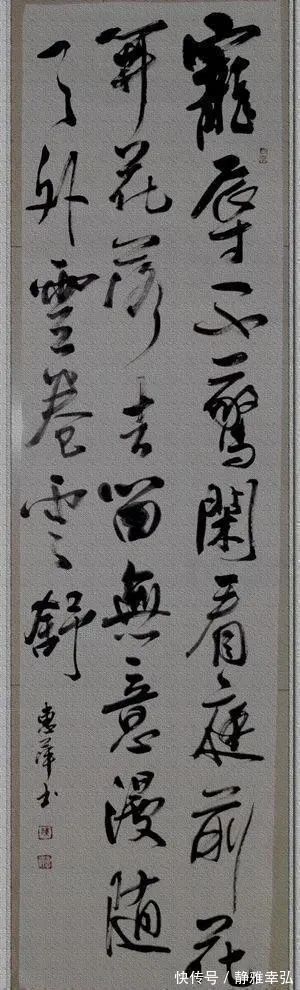 寵辱不驚閑看庭前花
開花落去留無意漫随
天外雲卷雲舒
惠萍书
快传号 / 静雅幸弘